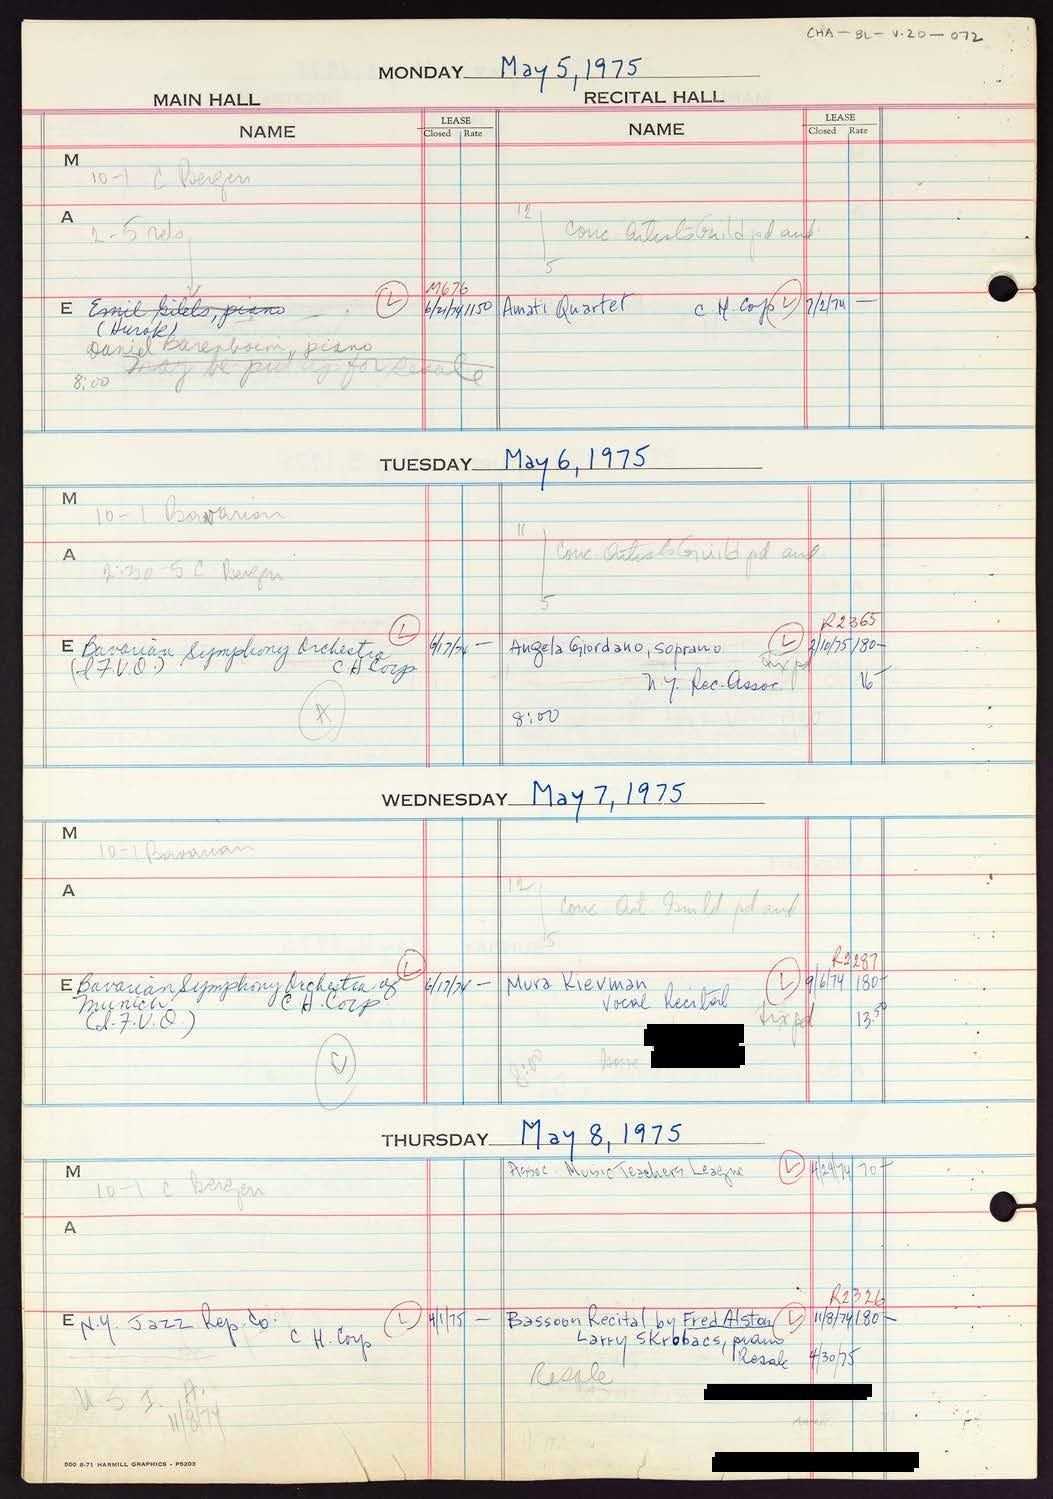 CHA-BL-V.20-072
MONDAY May 5, 1975
MAIN HALL RECITAL HALL
NAME LEASE Closed Rate NAME LEASE Closed Rate
M
10-1 C Bergen
A
2-5 rds
12
Conc Artists Guild pd and
5
M676
E Emil Gilels, piano L 6/21/74 1150 Amati Quartet C H Corp L 7/2/74 —
(Hurok)
Daniel Barenboim, piano
May be put up for resale
8:00
TUESDAY May 6, 1975
M
10-1 Bavarian
11
A
Conc Artists Guild pd and
2:30-5 C Bergen
5
R2365
E Bavarian Symphony Orchestra L 6/17/74 — Angela Giordano, soprano L 2/10/75 180—
(I.F.V.O.) C H Corp tix pd
N.Y. Rec. Assoc. 16—
A
8:00
WEDNESDAY May 7, 1975
M
10-1 Bavarian
A
12
Conc Art. Guild pd and
5
R2287
E Bavarian Symphony Orchestra of L 6/17/74 — Mura Kievman L 9/6/74 180—
Munich C H. Corp Vocal Recital
(I.F.V.O.) tix pd 13.50
C
8:00
THURSDAY May 8, 1975
M Assoc. Music Teachers League L 4/24/74 70—
10-1 C Bergen
A
R2326
E N.Y. Jazz Rep. Co. L 4/1/75 — Bassoon Recital by Fred Alston L 11/8/74 180—
C H. Corp Larry Skrobacs, piano
Resale 4/30/75
Resale
U S I A.
11/8/74
500 8-71 HARMILL GRAPHICS - P5203